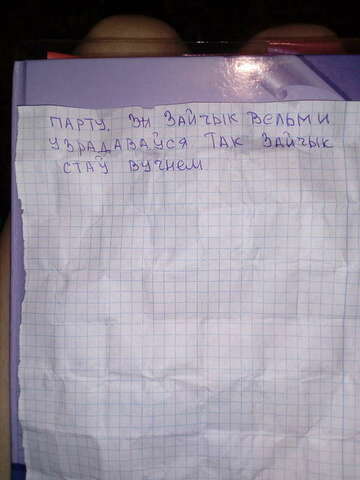 ПАРТУ. ЭН ЗАЙЧЫК ВЕЛЬМИ
УЗРАДАВАЎСЯ ТАК ЗАЙЧЫК
СТАЎ ВУЧНЕМ